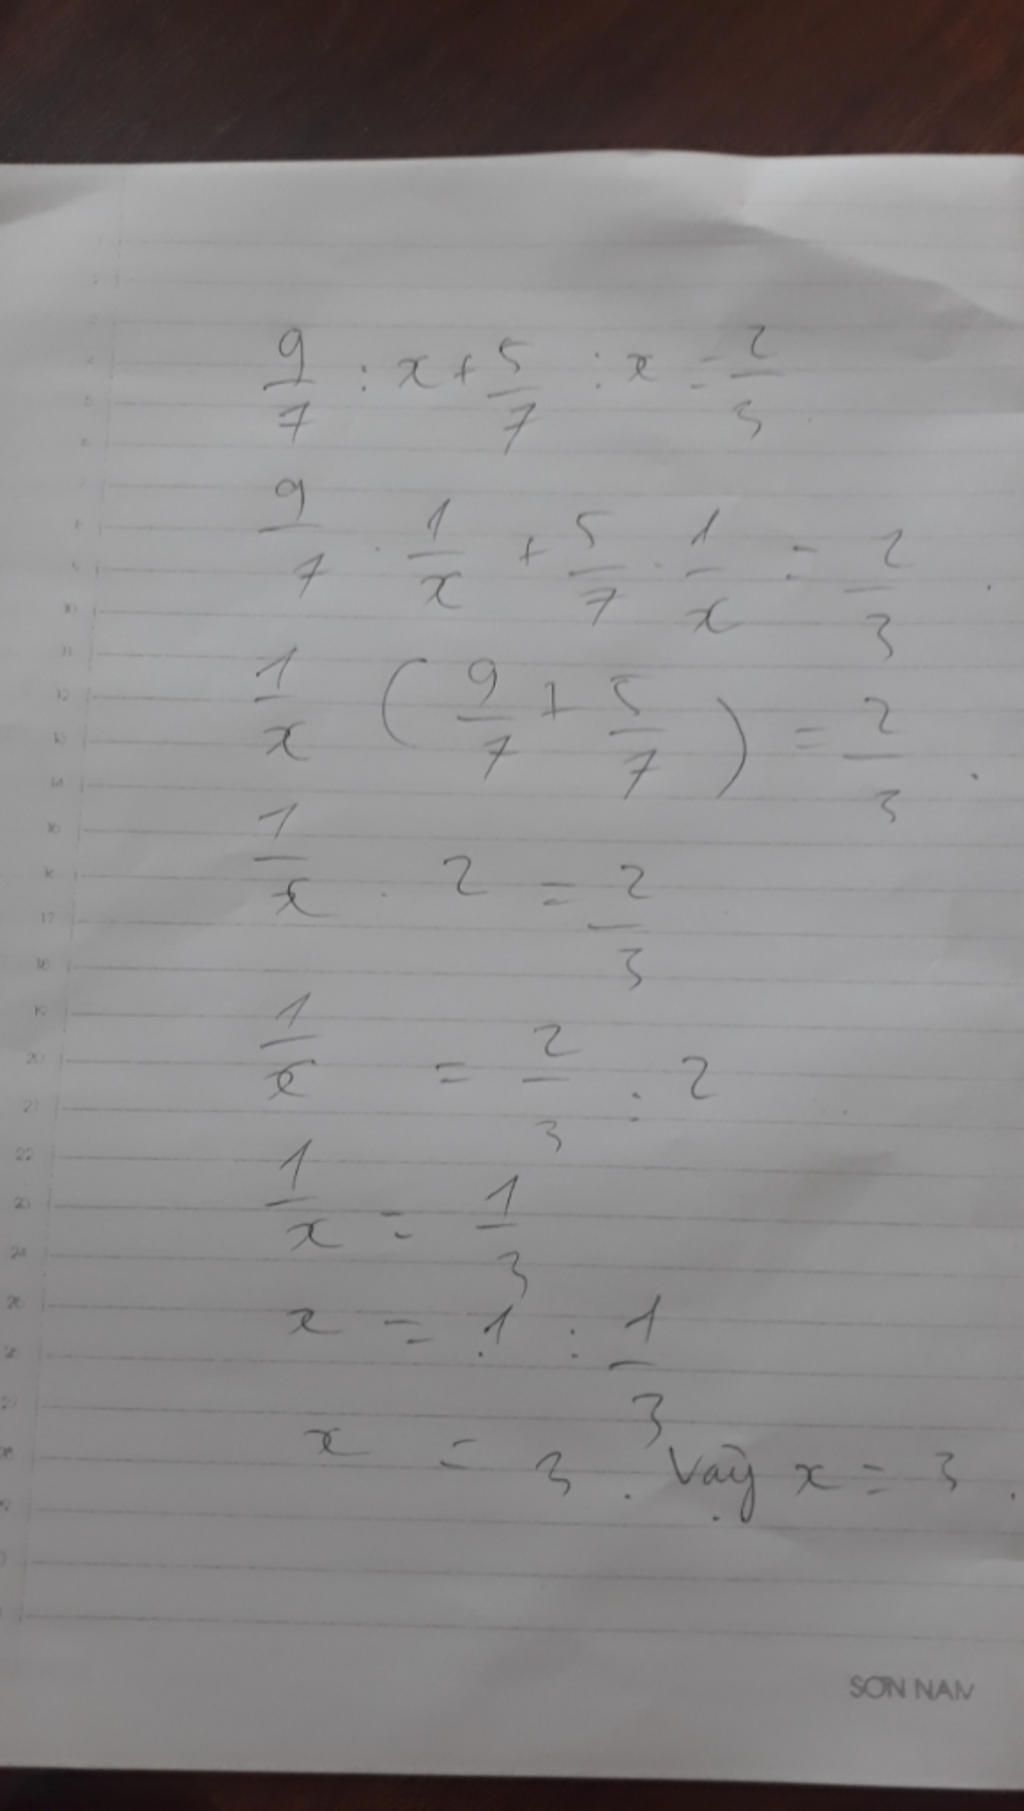 9/7 : x + 5/7 : x = 2/3
9/7 . 1/x + 5/7 . 1/x = 2/3
1/x ( 9/7 + 5/7 ) = 2/3
1/x . 2 = 2/3
1/x = 2/3 : 2
1/x = 1/3
x = 1 : 1/3
x = 3 . Vậy x = 3 .
SƠN NAM